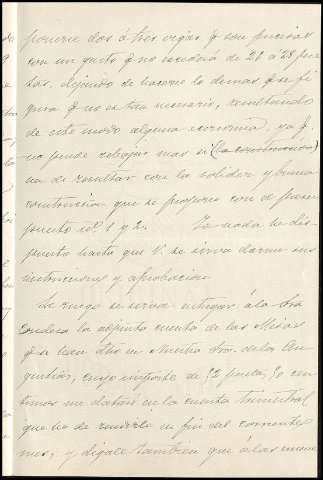 ponerse dos ó tres vigas q. son precisas
con un gasto q. no excederá de 26 á 28 pese
tas, dejando de hacerse lo demas que se fi
gura q. no es tan necesario, resultando
de este modo alguna economia, ya q.
no puede rebajar mas si (la construccion)
ha de resultar con la solidez y buena
construccion que se propuso con el presu
puesto nº 1 y 2. La nada he dis-
puesto hasta que V. se sirva darme sus
instrucciones y aprobacion.
Le ruego se sirva entregar á la Sra
Condesa la adjunta cuenta de las Misas
q. se han dho en Nuestra Sra. de las An
gustias, cuyo importe de 12 pesetas, 50 cen
timos me dataré en la cuenta trimestral
que he de rendirle en fin del corriente
mes; y dígale tambien que á las